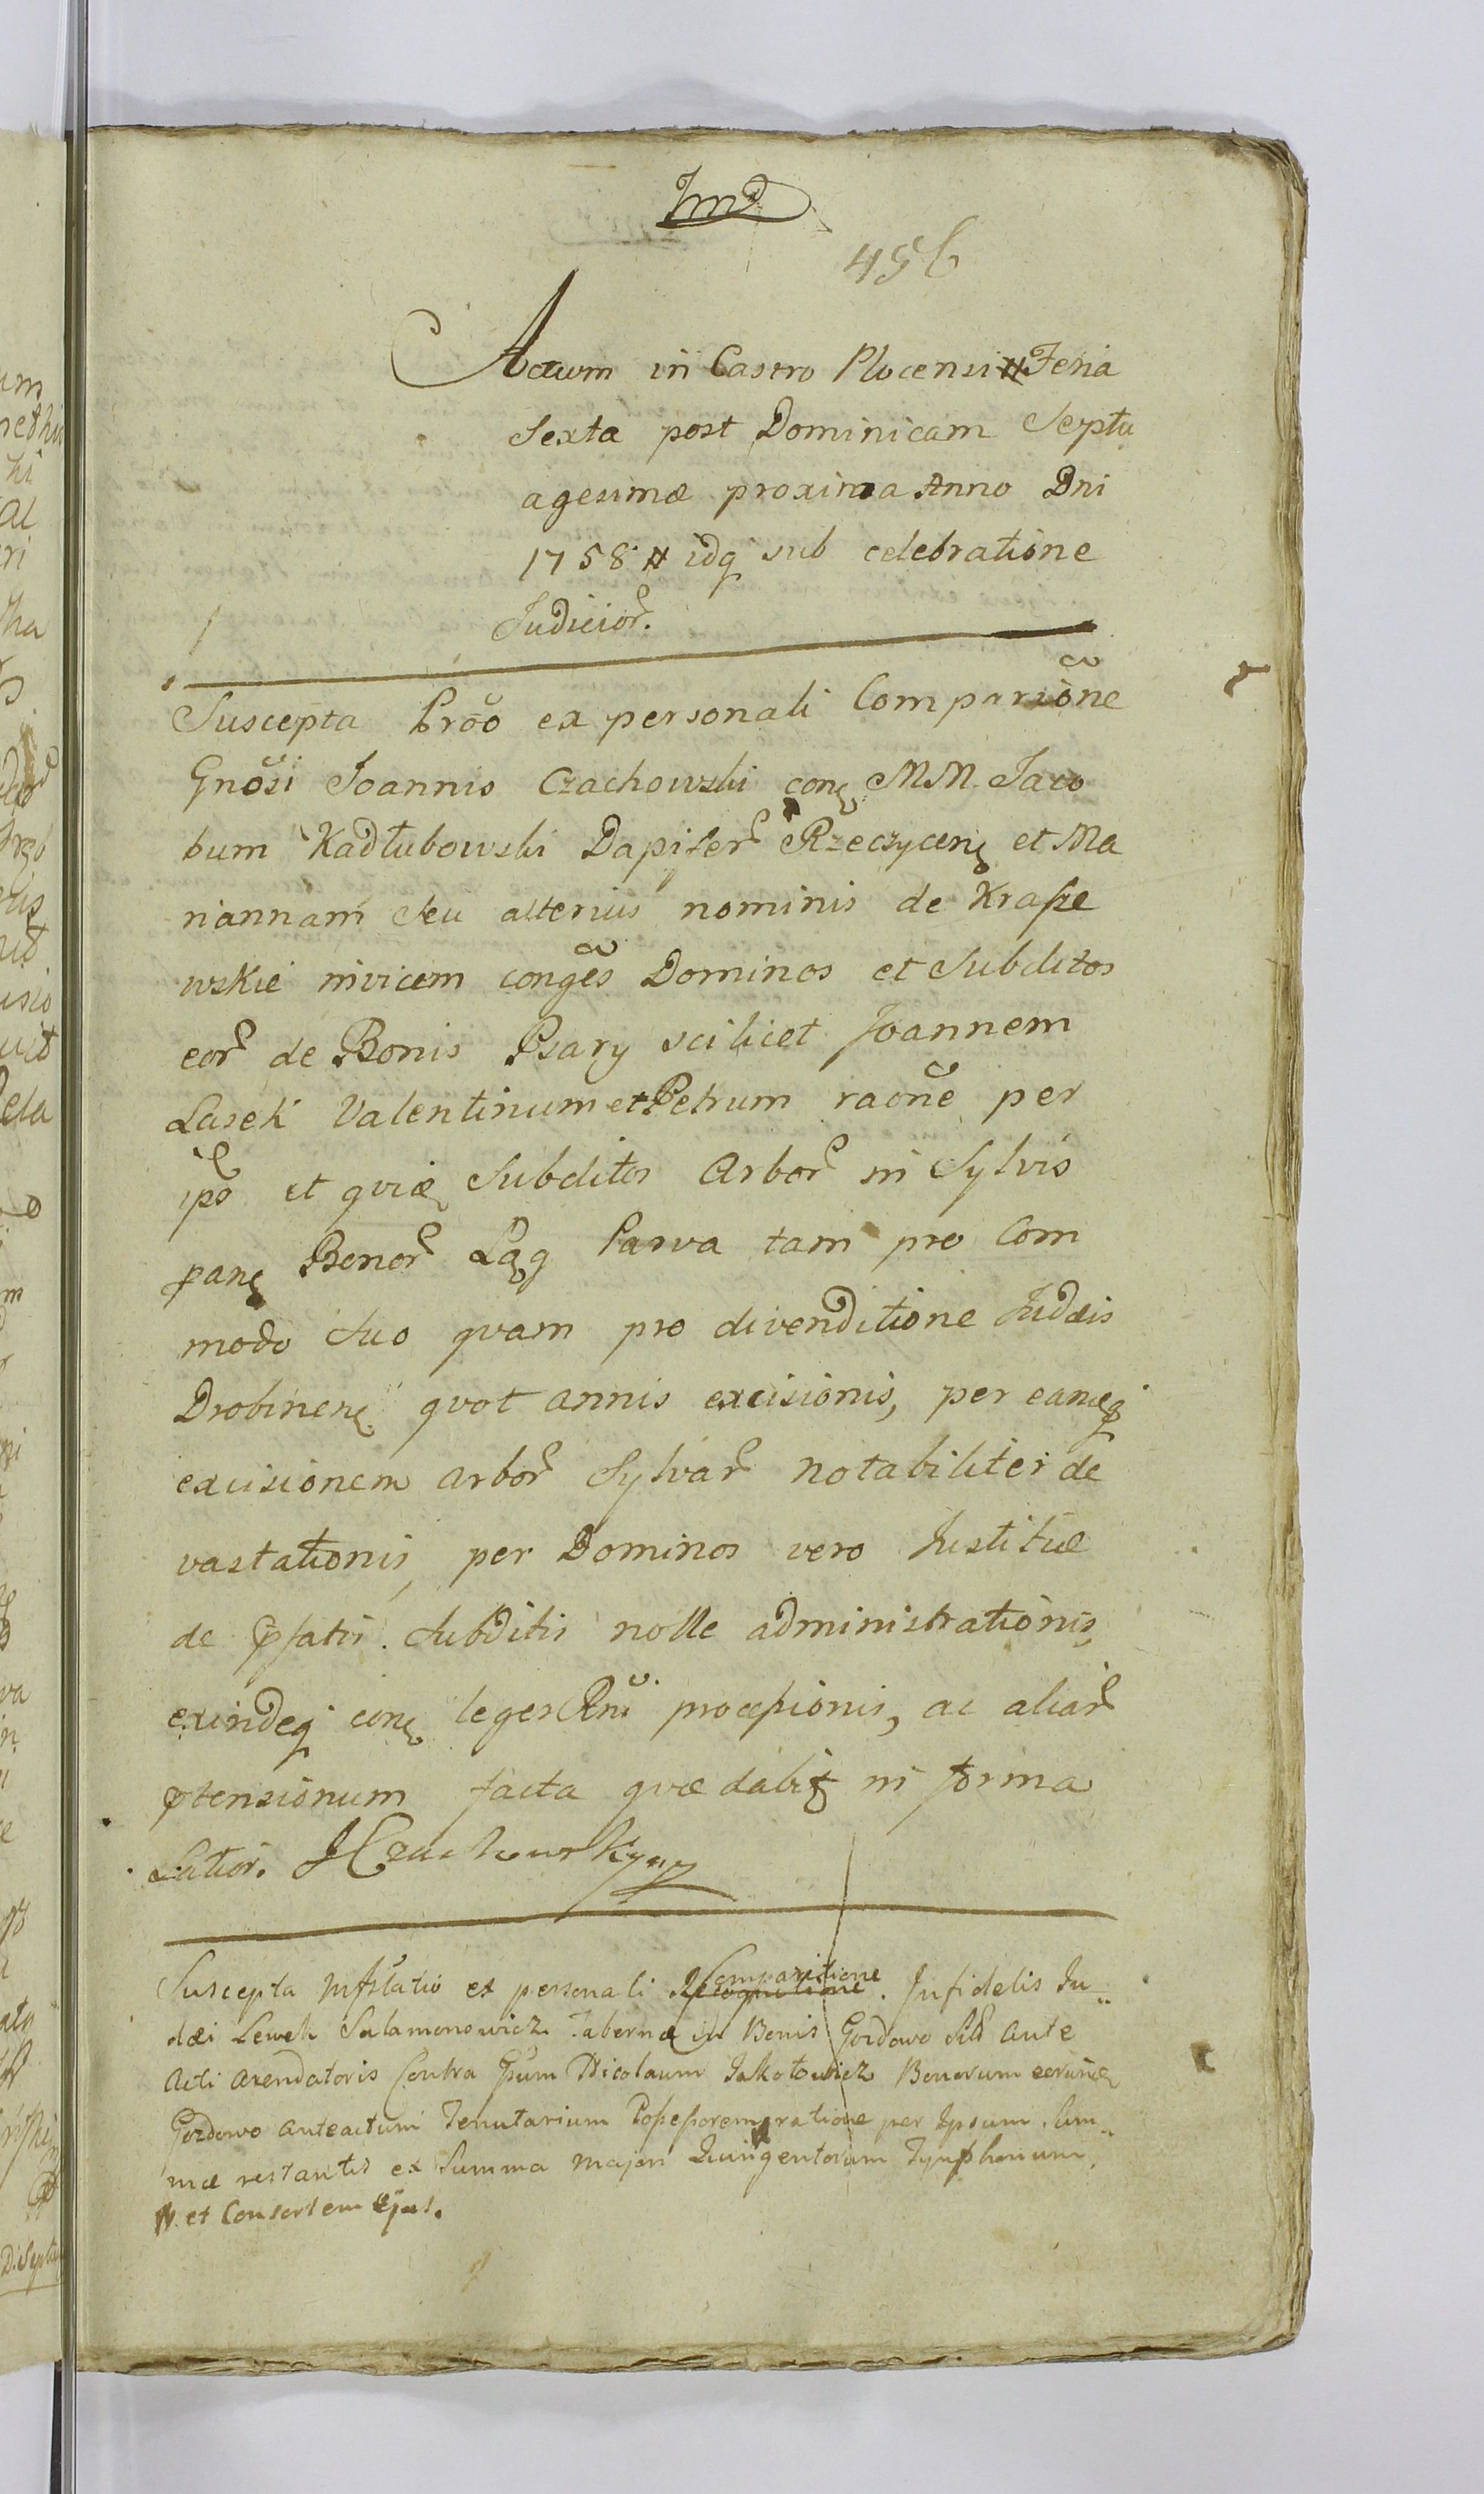 Jmd
456
Actum in Castro Plocensi # Feria
Sexta post Dominicam Septu
agesimæ proxima Anno Dni
1758 # idq sub celebratione
Judicior.
Suscepta Prõo ex personali Compariõne
Gnõsi Joannis Czachowski conę MM. Jaco
bum Kadłubowski Dapifer Rzeczycenę et Ma
riannam Seu alterius nominis de Krasze
wskie invicem congẽs Dominos et Subditos
eor de Bonis Psary scilicet Joannem
Lasek Valentinum et Petrum raõne per
ips et Subditos Arbor in Sylvis
panę Bonor Łąg Parva tam pro Com
modo Suo qvam pro divenditione Judæis
Drobinenę qvot annis excisionis, per eamq
excisionem arbor Sylvar notabiliter de
vastationis, per Dominos vero Justitiæ
de pfatis Subditis nolle administrationis,
exindeq conę leges Rni processionis, ac aliar
ptensionum facta qvæ dabit in forma
Latior. JCzachowski
Suscepta Mfstatio ex personali Comparitione. Infidelis Ju„
dæi Lewek Salamonowicz Tabernæ in Bonis Gozdowo Sitæ Ante
Acti Arendatoris Contra Gsum Nicolaum Jakotowicz Bonorum eorundę
Gozdowo anteactum Tenutarium Possessorem # ratione per Ipsum Sum„
mæ restantis ex Summa majori Quingentorum Tynphonum,
# et Consortem Ejus.